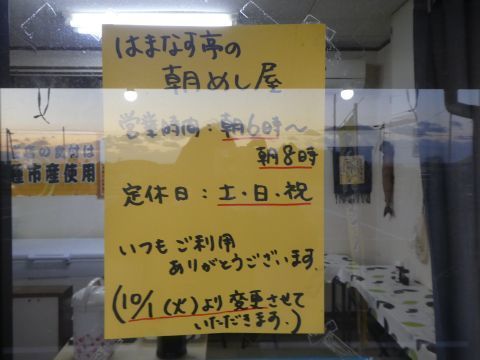 はまなす亭の
朝めし屋
営業時間：朝6時〜
朝8時
定休日：土・日・祝
いつもご利用
ありがとうございます.
(10/1(火)より変更させて
いただきます.)
市産使用